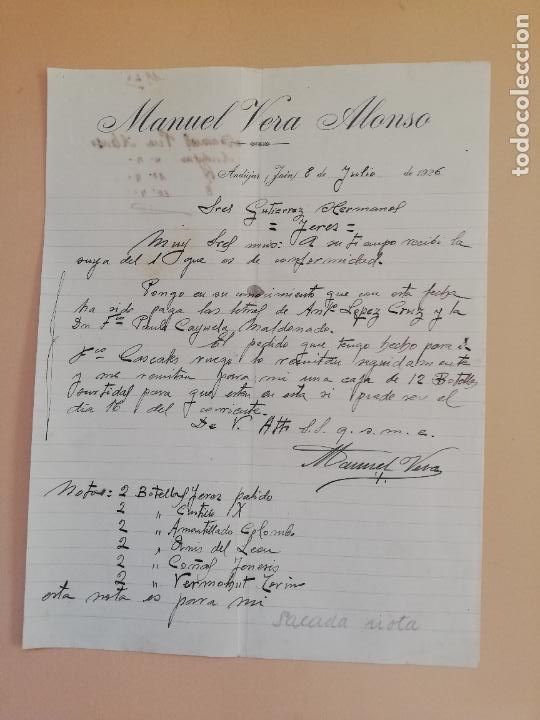 Manuel Vera Alonso
Andújar (Jaén) 8 de Julio de 1926
Sres Gutierrez Hermanos
= Jerez =
Muy Sres mios: A su tiempo recibi la
suya del 1º que es de conformidad.
Pongo en su conocimiento que con esta fecha
ha sido pagas las letras de Antº Lopez Cruz y la
Dn Fco Paula Cayuela Maldonado.
El pedido que tengo hecho para
Fco Cascales ruego lo remitan seguidamente
y me remitan para mi una caja de 12 Botellas
surtidas para que esten en esta si puede ser el
dia 16 del corriente.
De V. Atto S.S. q. s. m. e.
Manuel Vera
Nota: 2 Botellas Jerez palido
2 " X
2 " Amontillado Colombo
2 " Anis del Leon
2 " Coñac
2 " Vermohut Torino
esta nota es para mi
sacada nota
todocoleccion.net